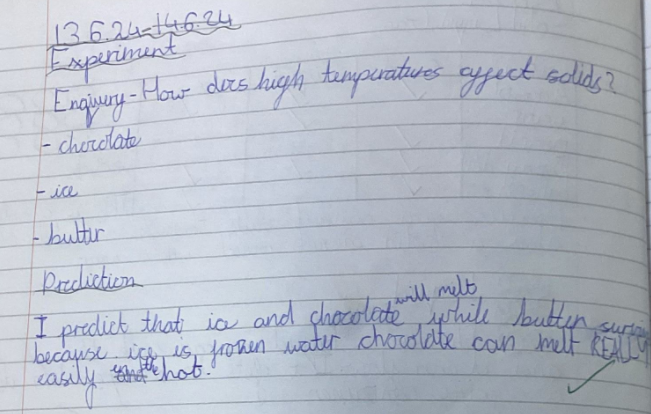 13.6.24-14.6.24
Experiment
Enquiry - How does high temperatures affect solids?
- chocolate
- ice
- butter
Prediction
I predict that ice and chocolate will melt while butter
because ice is frozen water chocolate can melt REALLY
easily hot.